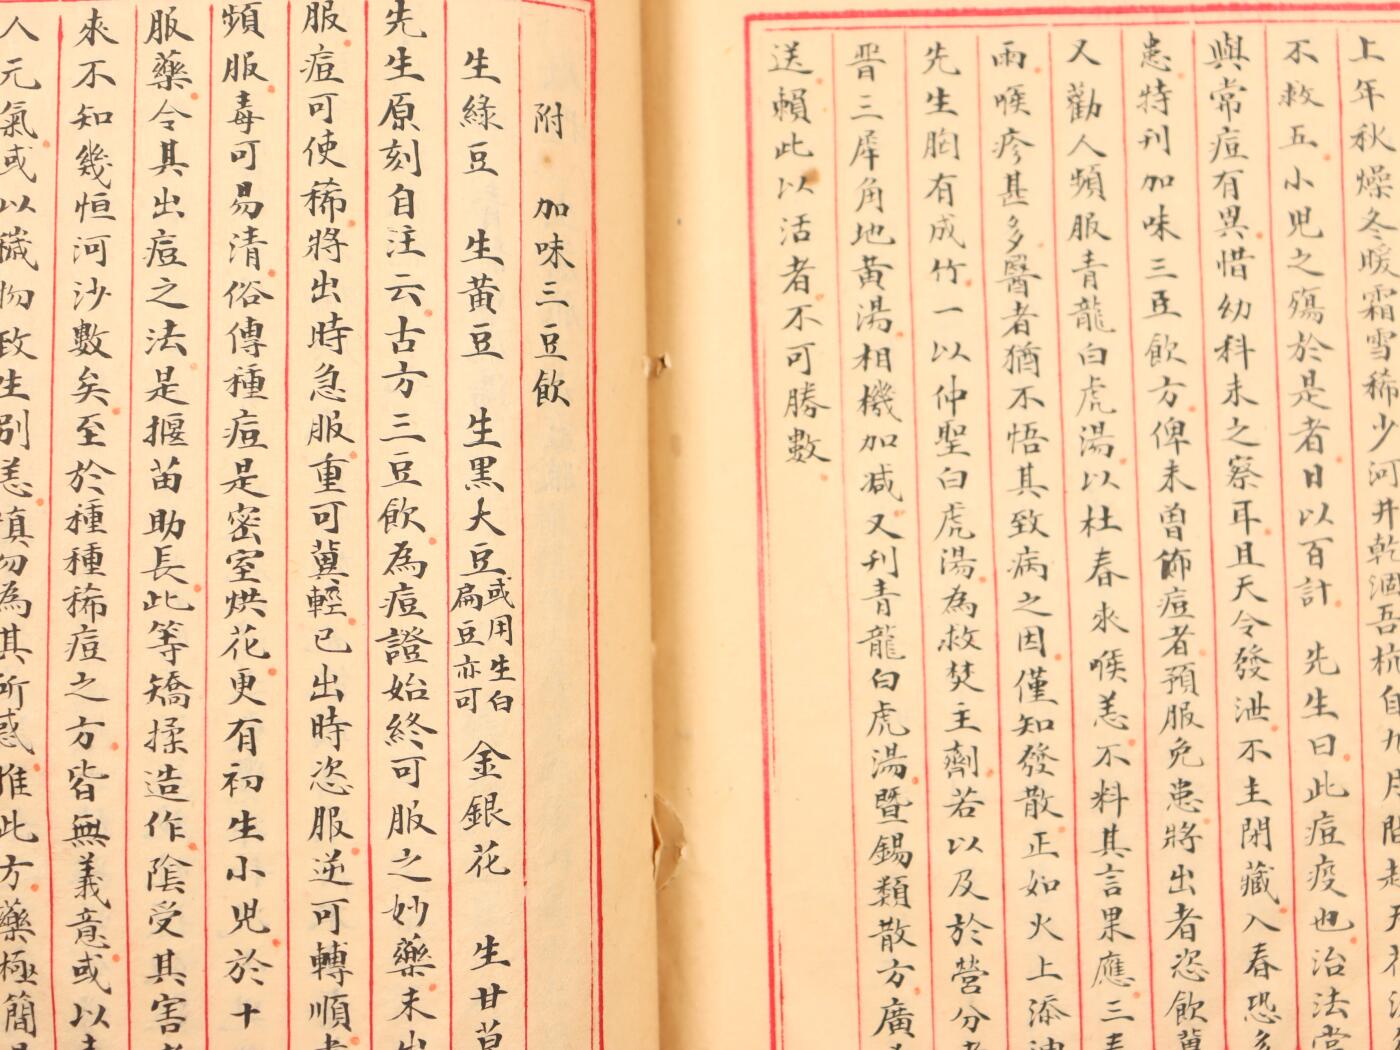 上年秋燥冬暖霜雪稀少河井乾涸吾杭自九月間起天
不救五小兒之殤於是者日以百計 先生曰此痘疫也治法當
與常痘有異惜幼科未之察耳且天令發泄不主閉藏入春恐多
患特刊加味三豆飲方俾未曾飾痘者預服免患將出者恣飲冀
又勸人頻服青龍白虎湯以杜春來喉恙不料其言果應三
雨喉疹甚多醫者猶不悟其致病之因僅知發散正如火上添油
先生胸有成竹一以仲聖白虎湯為救焚主劑若以及於營分者
晋三犀角地黃湯相機加減又刊青龍白虎湯暨錫類散方廣
送賴此以活者不可勝數
附 加味三豆飲
生綠豆 生黃豆 生黑大豆或用生白扁豆亦可 金銀花 生甘草
先生原刻自注云古方三豆飲為痘證始終可服之妙藥未出
服痘可使稀將出時急服重可冀輕已出時恣服逆可轉順
頻服毒可易清俗傳種痘是密室烘花更有初生小兒於十
服藥令其出痘之法是揠苗助長此等矯揉造作陰受其害
來不知幾恒河沙數矣至於種種稀痘之方皆無義意或以
人元氣或以穢物致生別恙慎勿為其所惑惟此方藥極簡